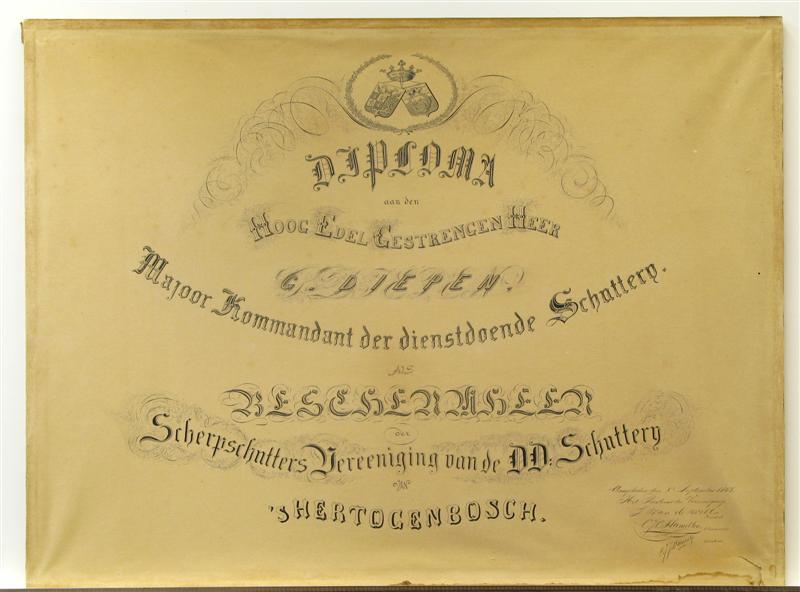 DIPLOMA
aan den
HOOG EDEL GESTRENGEN HEER
G. DIEPEN.
Majoor Kommandant der dienstdoende Schuttery.
ALS
BESCHERMHEER
der
Scherpschutters Vereeniging van de DD: Schuttery
VAN
'S HERTOGENBOSCH.